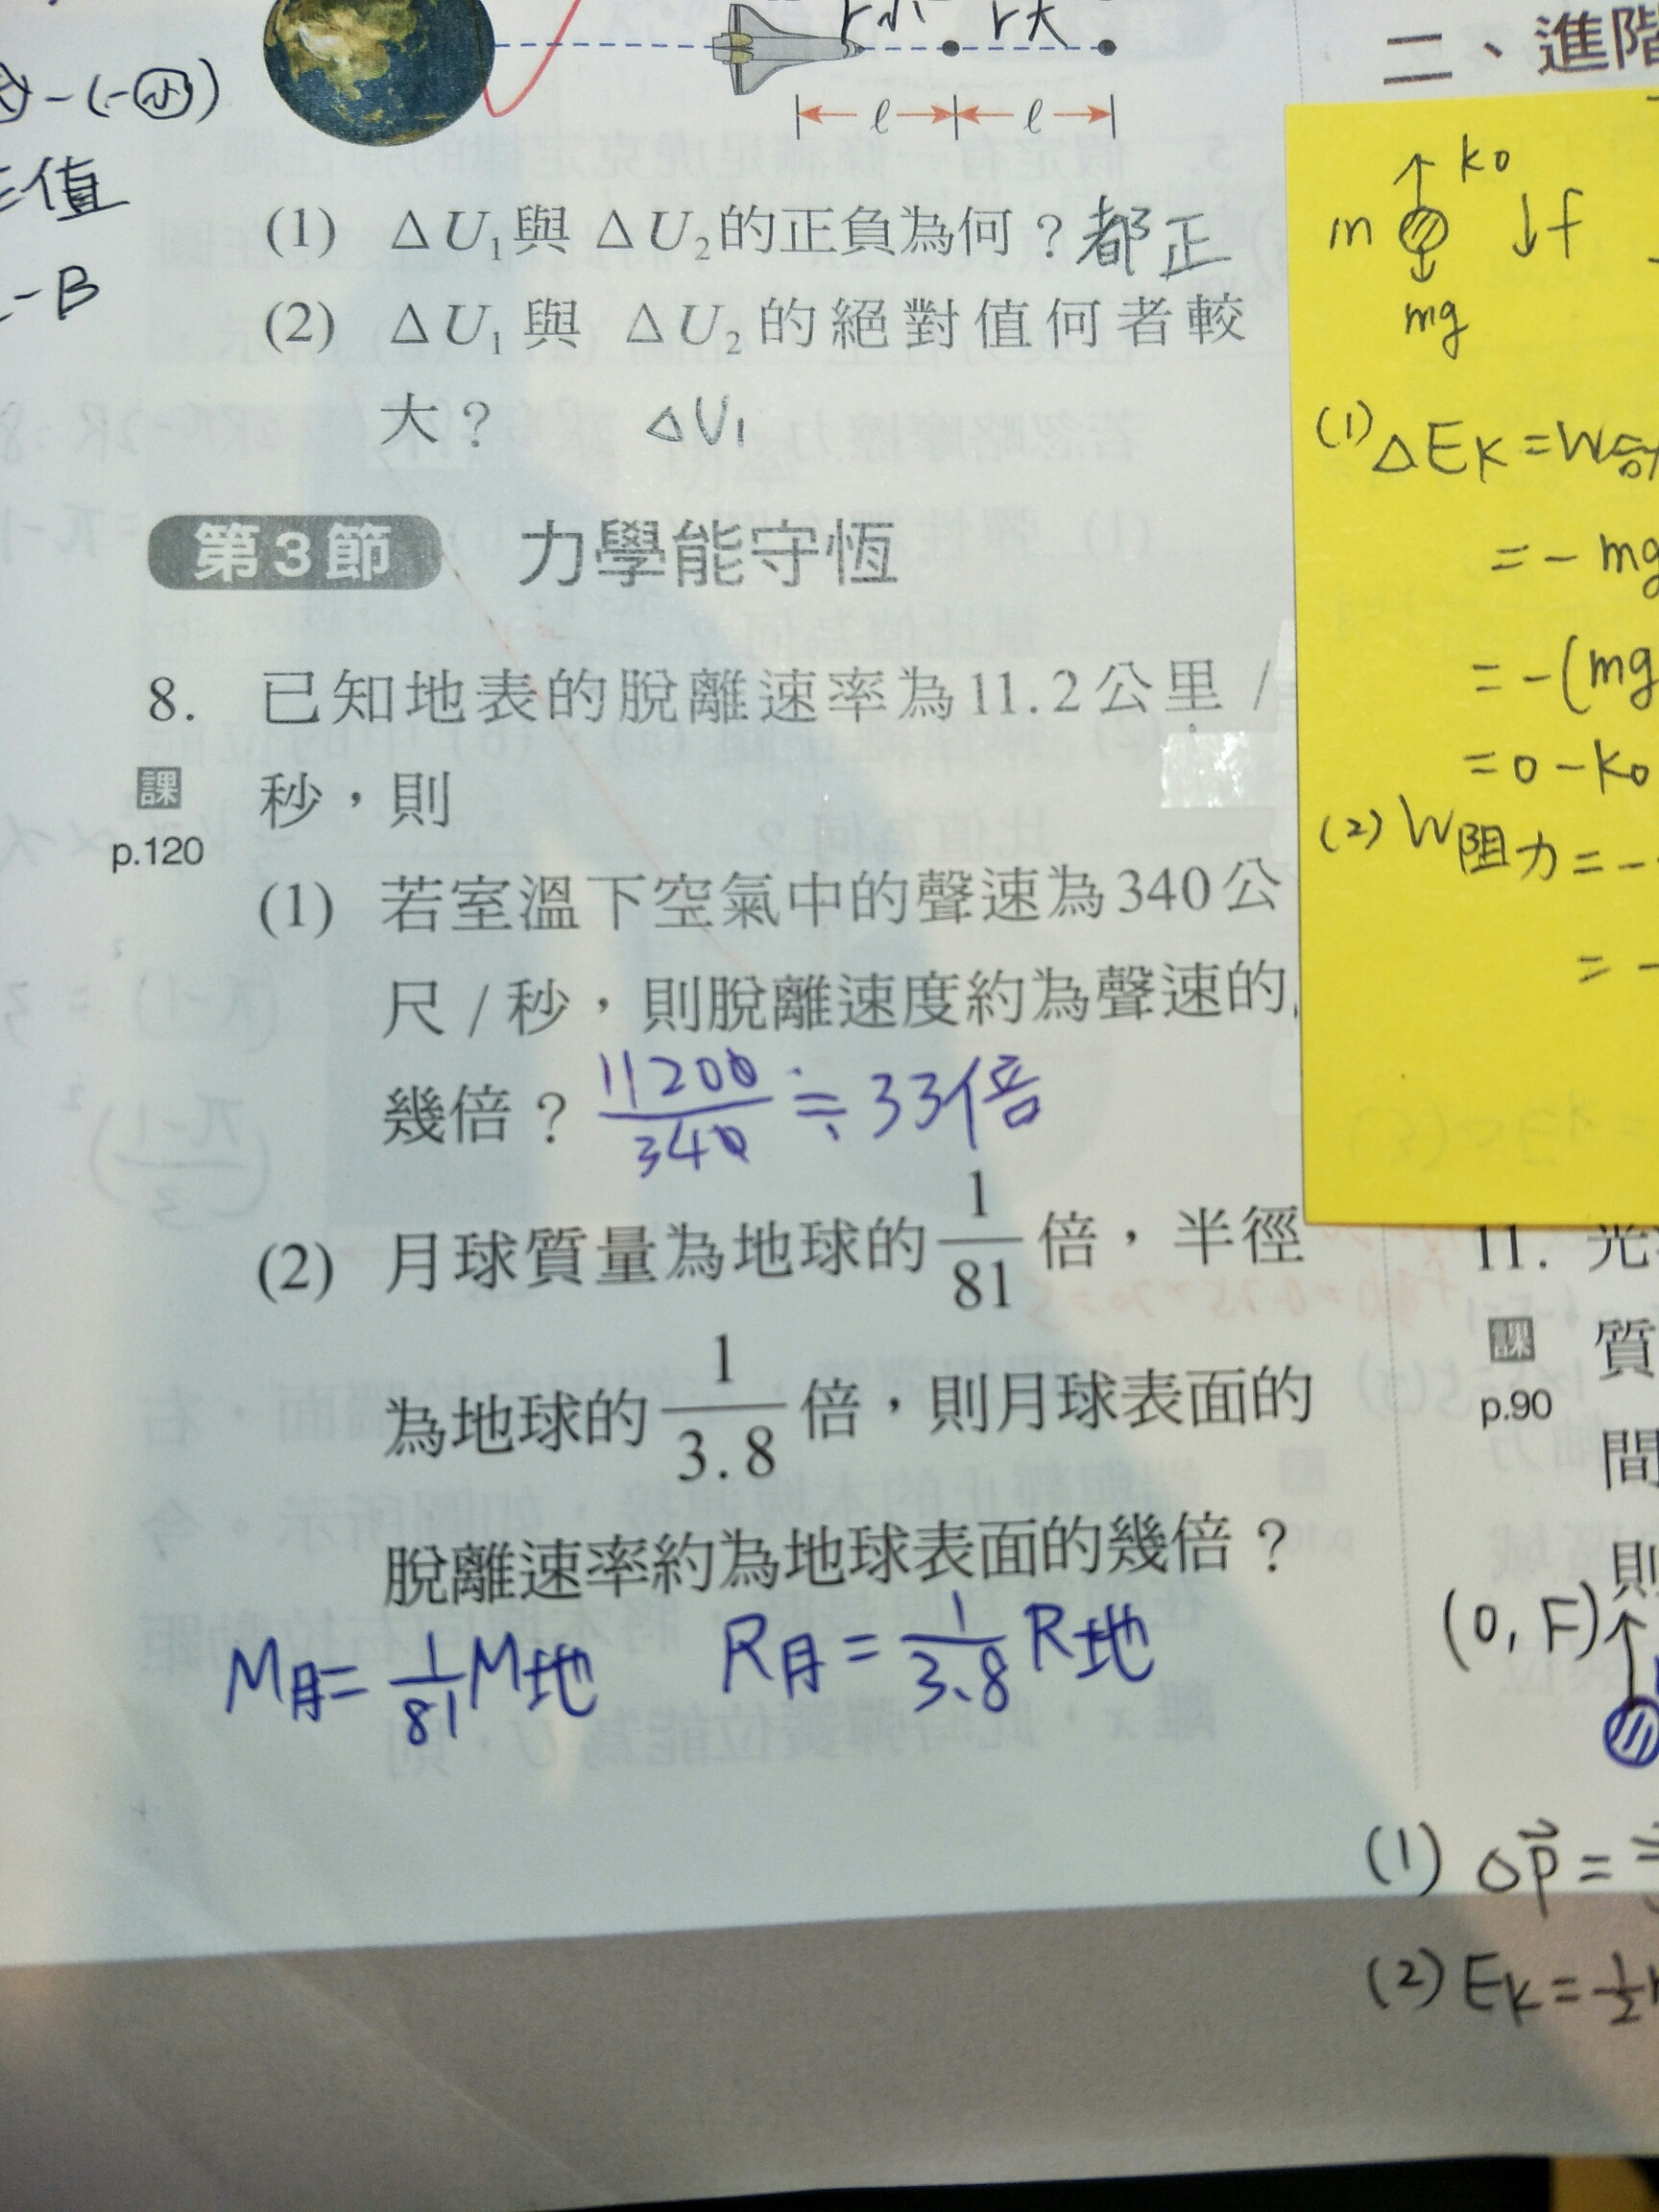 r小 r大
ℓ ℓ
-(-小)
值
-B
(1) ΔU₁與 ΔU₂的正負為何？都正
(2) ΔU₁與 ΔU₂的絕對值何者較
大？ ΔU₁
第3節 力學能守恆
8. 已知地表的脫離速率為11.2公里/
課 秒，則
p.120
(1) 若室溫下空氣中的聲速為340公
尺/秒，則脫離速度約為聲速的
幾倍？ 11200/340 ≒ 33倍
(2) 月球質量為地球的 1/81 倍，半徑
為地球的 1/3.8 倍，則月球表面的
脫離速率約為地球表面的幾倍？
M月= 1/81 M地 R月= 1/3.8 R地
二、進階
k0
m ↓f
mg
(1) ΔEK=W合
=-mg
=-(mg
=0-k0
(2) W阻力=-
=-
11. 光
課 質
p.90
間
則
(0, F)
(1) Δp⃗=
(2) Ek=½